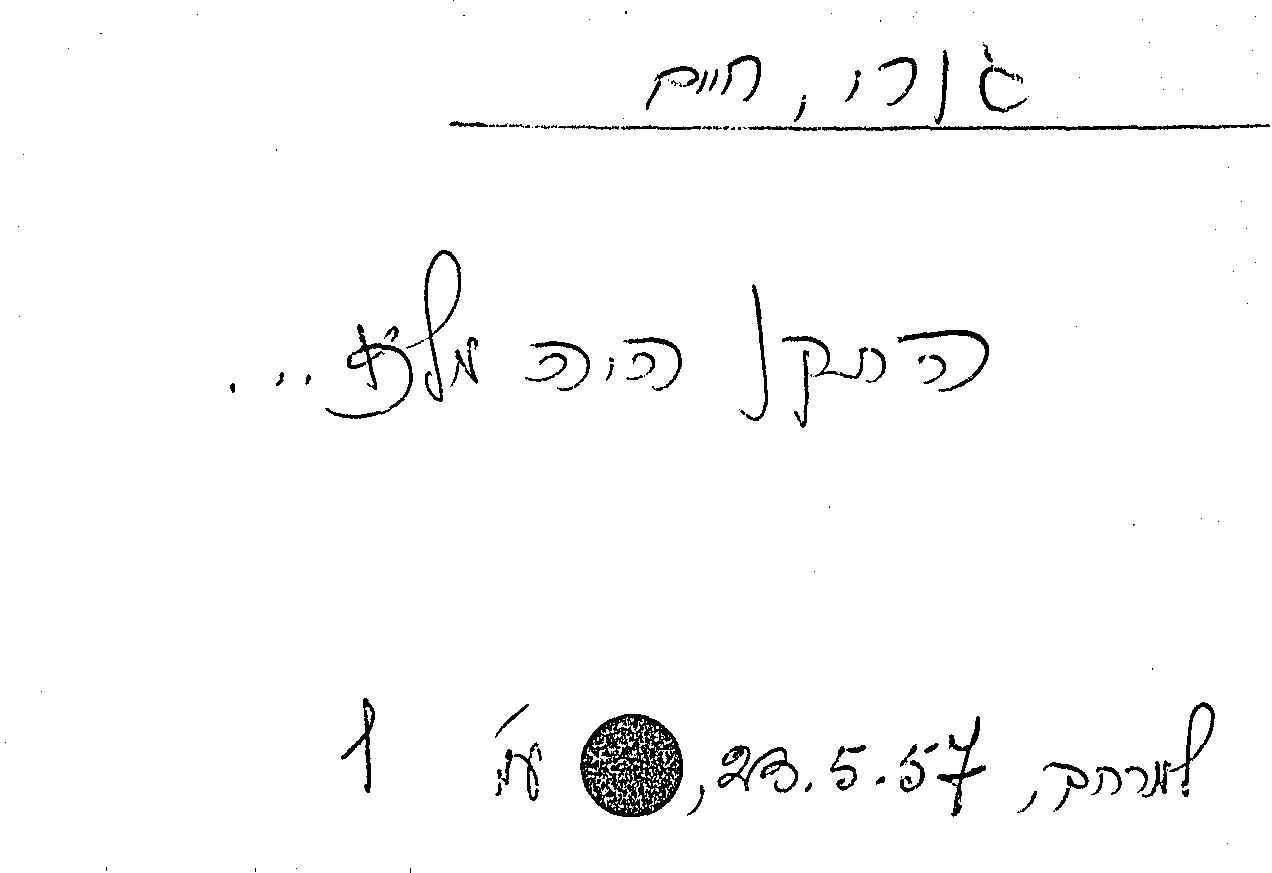 גורי, חיים
התקן היה ...
למרחב, 23.5.57, עמ' 1